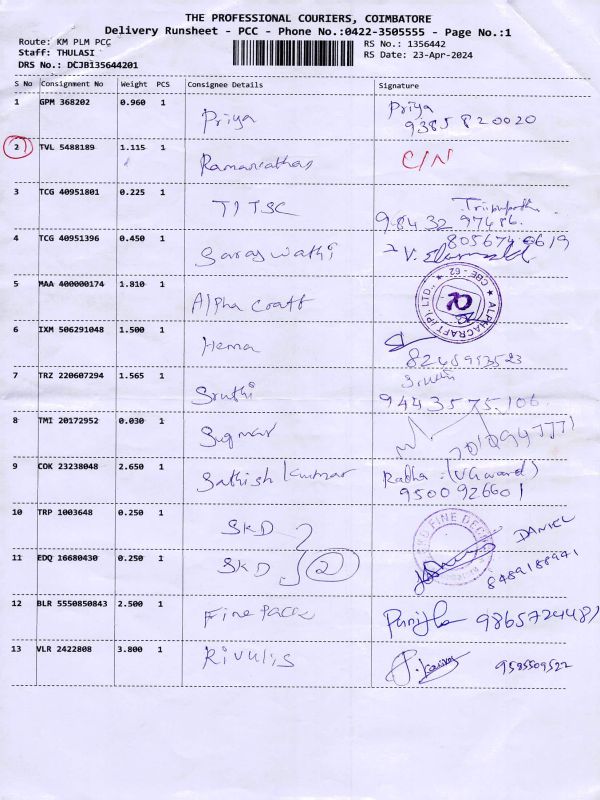 THE PROFESSIONAL COURIERS, COIMBATORE
Delivery Runsheet - PCC - Phone No.:0422-3505555 - Page No.:1
Route: KM PLM PCC
Staff: THULASI
DRS No.: DCJB135644201
RS No.: 1356442
RS Date: 23-Apr-2024
S No Consignment No Weight PCS Consignee Details Signature
1 GPM 368202 0.960 1 Priya Priya
9385820020
2 TVL 5488189 1.115 1 Ramanathan C/N
3 TCG 40951801 0.225 1 TITSC
98432 97486.
4 TCG 40951396 0.450 1 Saraswathi 8056740619
5 MAA 400000174 1.810 1 Alpha Craft
ALPHACRAFT (P) LTD., ★ CBE - 62 ★
6 IXM 506291048 1.500 1 Hema
7 TRZ 220607294 1.565 1 Sruthi Sruthi
9443575106
8 TMI 20172952 0.030 1 Sugmar
9 COK 23238048 2.650 1 Sathish Kumar Radha (VGward)
9500926601
10 TRP 1003648 0.250 1 SKD DANIEL
11 EDQ 16680430 0.250 1 SKD 2 8489188941
12 BLR 5550850843 2.500 1 Fine Pack 9865724487
13 VLR 2422808 3.800 1 Rivulis 9585509522